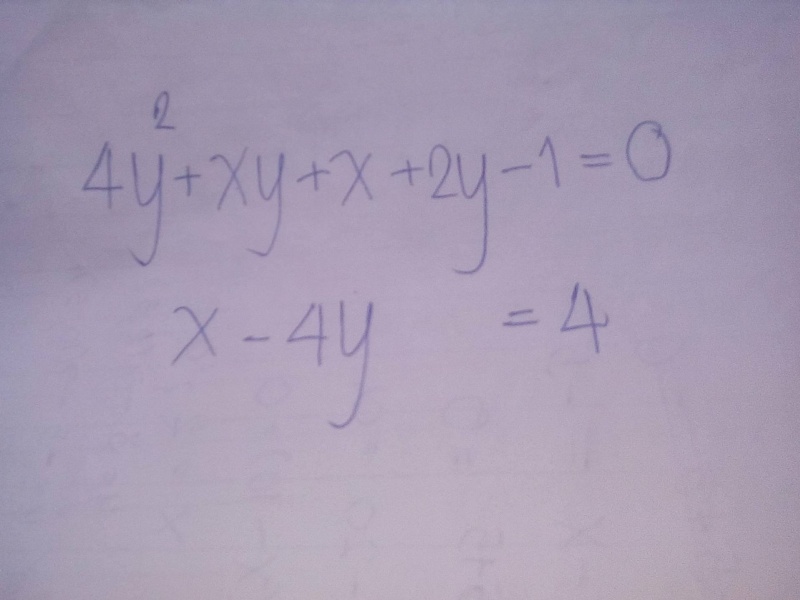 4y²+xy+x+2y-1=0
x-4y =4